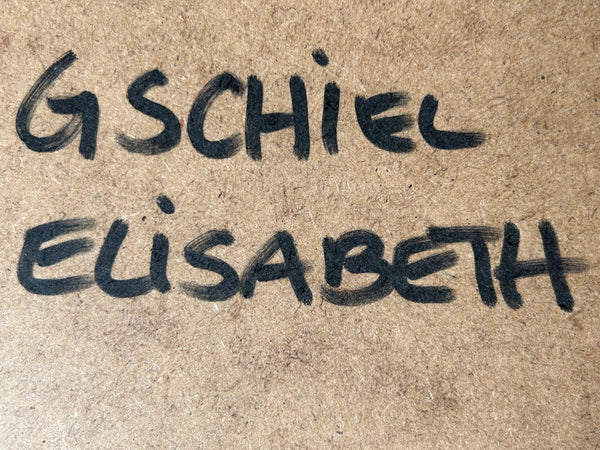 GSCHiEL
ELiSABETH